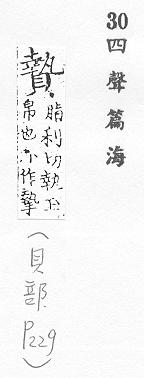 30四聲篇海
贄脂利切執玉
帛也亦作摯
（貝部P229）